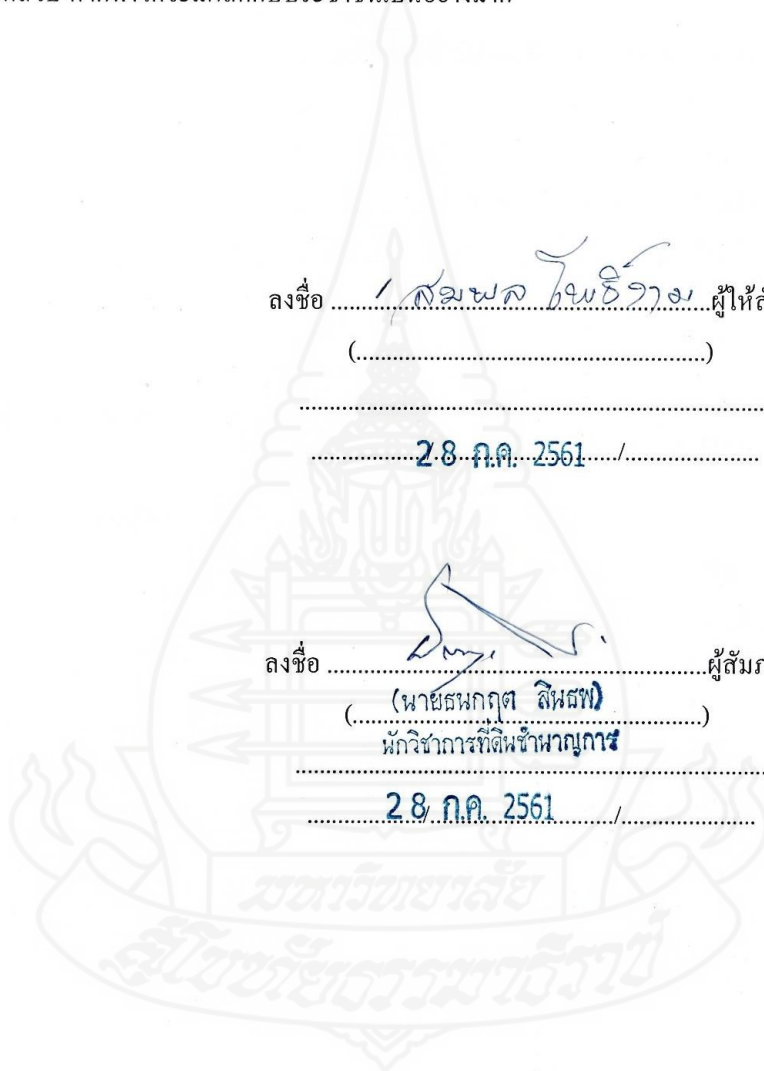 ลงชื่อ ........ สมพล โพธิ์งาม ........ผู้ให้สั
(......................................................)
........................................................................
............28 ก.ค. 2561....../........................
ลงชื่อ ..............................................................ผู้สัมภ
(นายธนกฤต สินธพ)
นักวิชาการที่ดินชำนาญการ
............28 ก.ค. 2561........./........................
มหาวิทยาลัย
สุโขทัยธรรมาธิราช